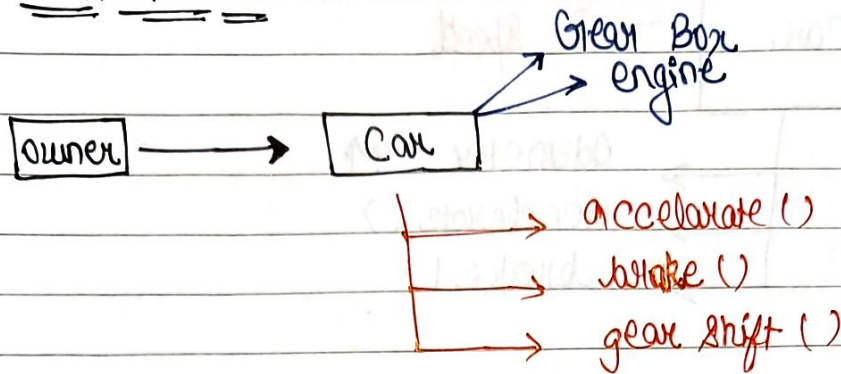 Gear Box
engine
owner
Car
accelarate ()
brake ()
gear shift ()